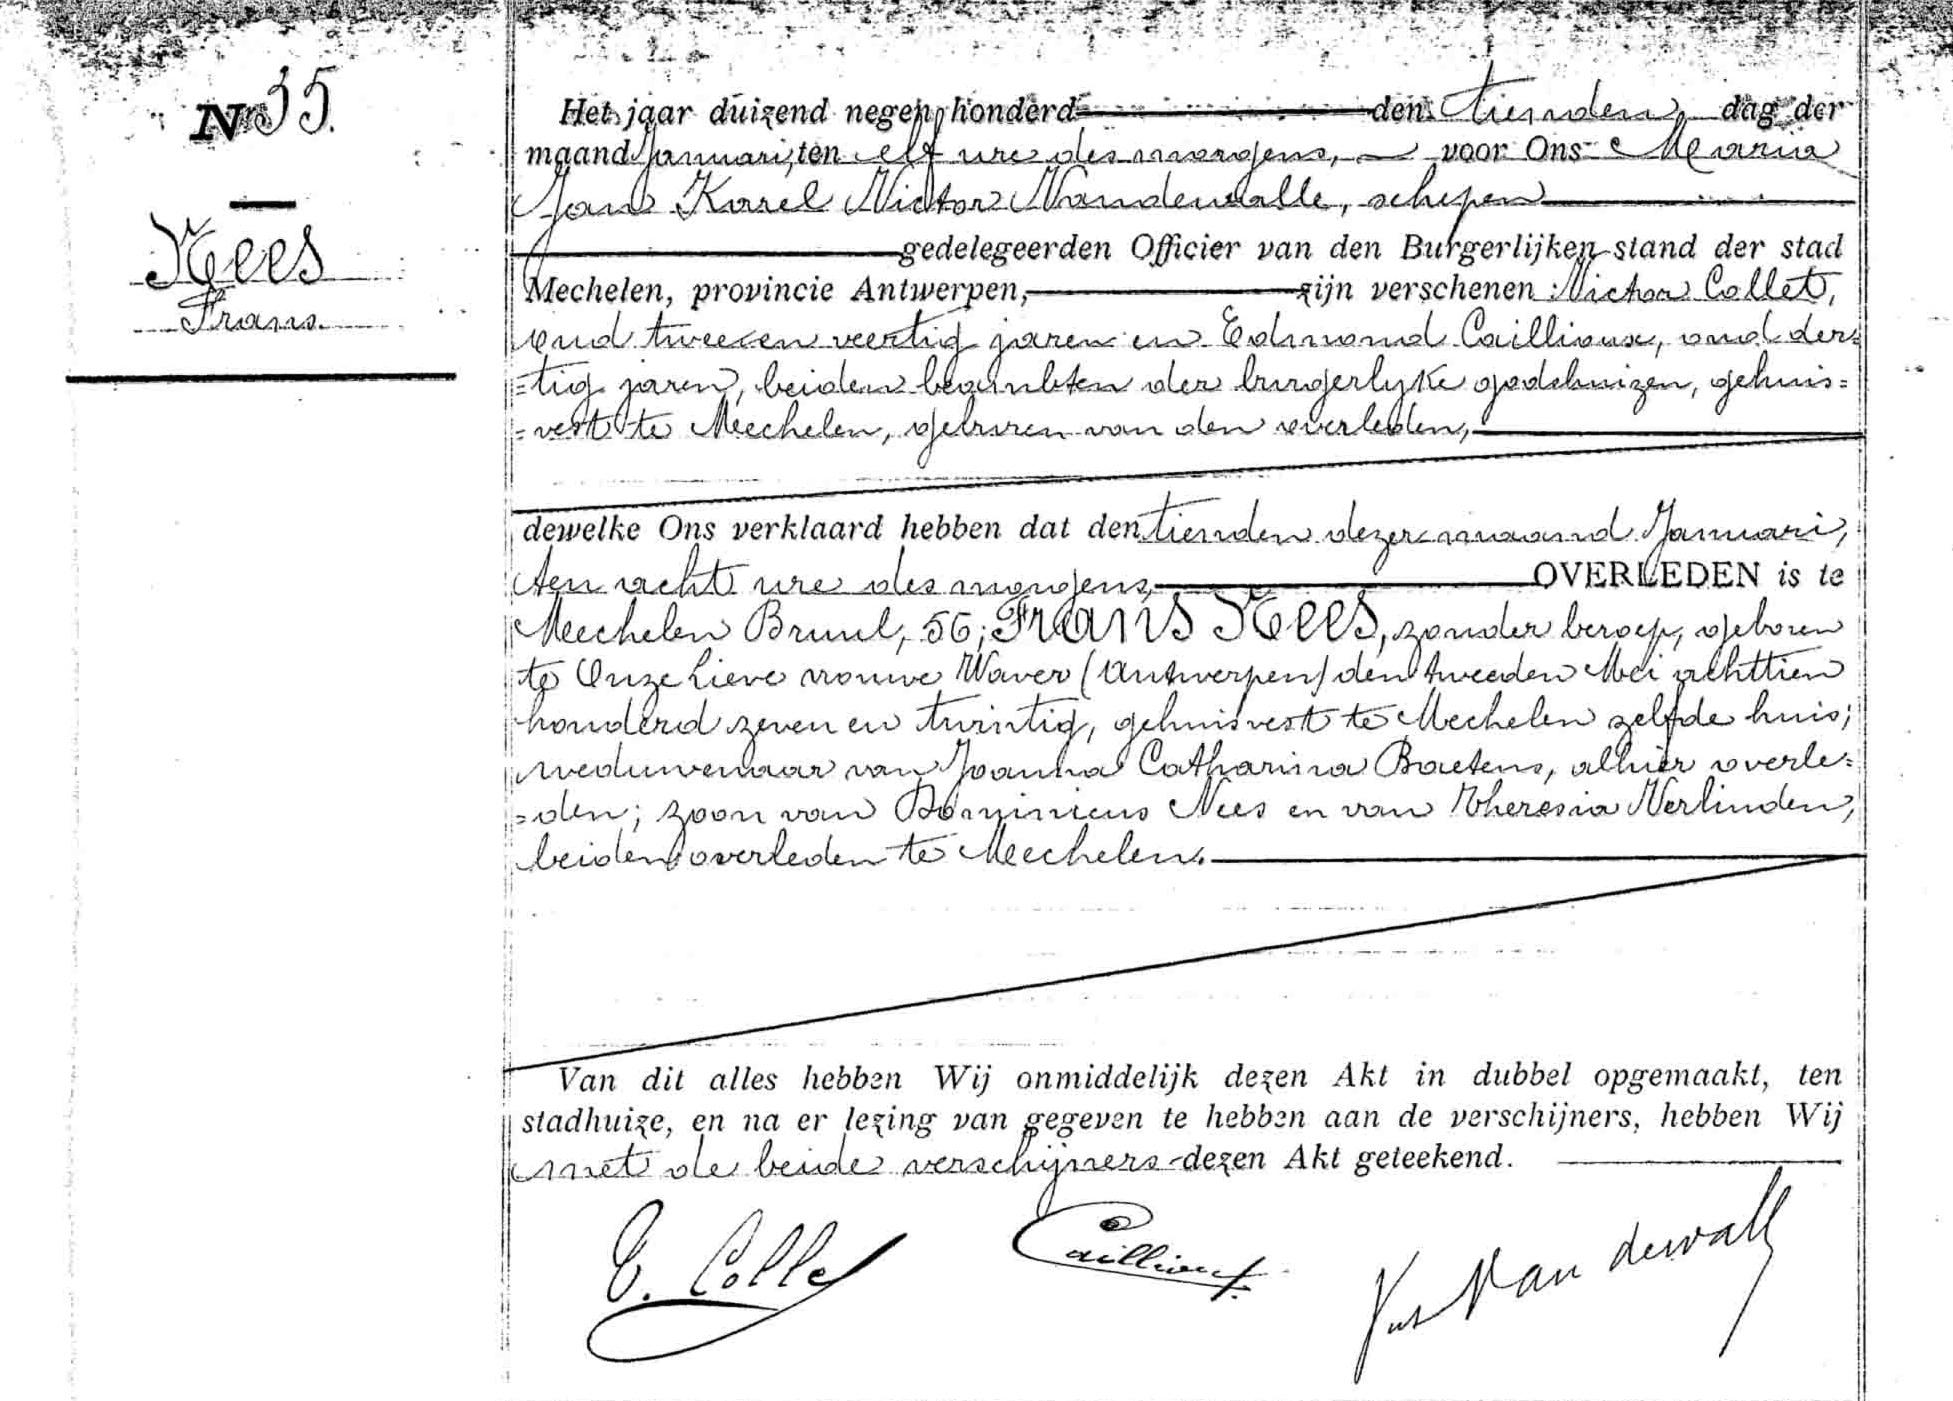 Nr 35.
Nees
Frans.
Het jaar duizend negen honderd den tienden dag der
maand Januari, ten elf ure des morgens, voor Ons Maria
Jan Karel Victor Vandewalle, schepen
gedelegeerden Officier van den Burgerlijken stand der stad
Mechelen, provincie Antwerpen, zijn verschenen : Victor Collet,
oud twee en veertig jaren en Edmond Caillioux, oud der=
=tig jaren, beiden beambten der burgerlyke godshuizen, gehuis=
=vest te Mechelen, geburen van den overleden,
dewelke Ons verklaard hebben dat den tienden dezer maand Januari,
ten acht ure des morgens, OVERLEDEN is te
Mechelen Bruul, 56, Frans Nees, zonder beroep, geboren
te Onze Lieve vrouwe Waver (Antwerpen) den tweeden Mei achttien
honderd zeven en twintig, gehuisvest te Mechelen zelfde huis;
weduwenaar van Joanna Catharina Baetens, alhier overle=
=den; zoon van Dominicus Nees en van Theresia Verlinden,
beiden overleden te Mechelen.
Van dit alles hebben Wij onmiddelijk dezen Akt in dubbel opgemaakt, ten
stadhuize, en na er lezing van gegeven te hebben aan de verschijners, hebben Wij
met de beide verschijners dezen Akt geteekend.
V. Collet Caillioux Vandewalle